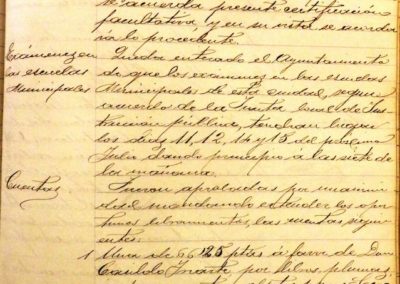 se acuerda presente certificación
facultativa, y en su vista se acorda
rá lo procedente.
Exámenes en
las escuelas
Municipales
Queda enterado el Ayuntamiento
de que los exámenes en las escuelas
Municipales de esta ciudad, según
acuerdo de la Junta local de Ins
trucción pública, tendrán lugar
los dias 11, 12, 14 y 15 del próximo
Julio dando principio a las siete de
la mañana.
Cuentas
Fueron aprobadas por unanimi
dad mandando extender los opor
tunos libramientos, las cuentas siguien
entes:
1 Una de 66'25 ptas á favor de Don
por libros, plumas,